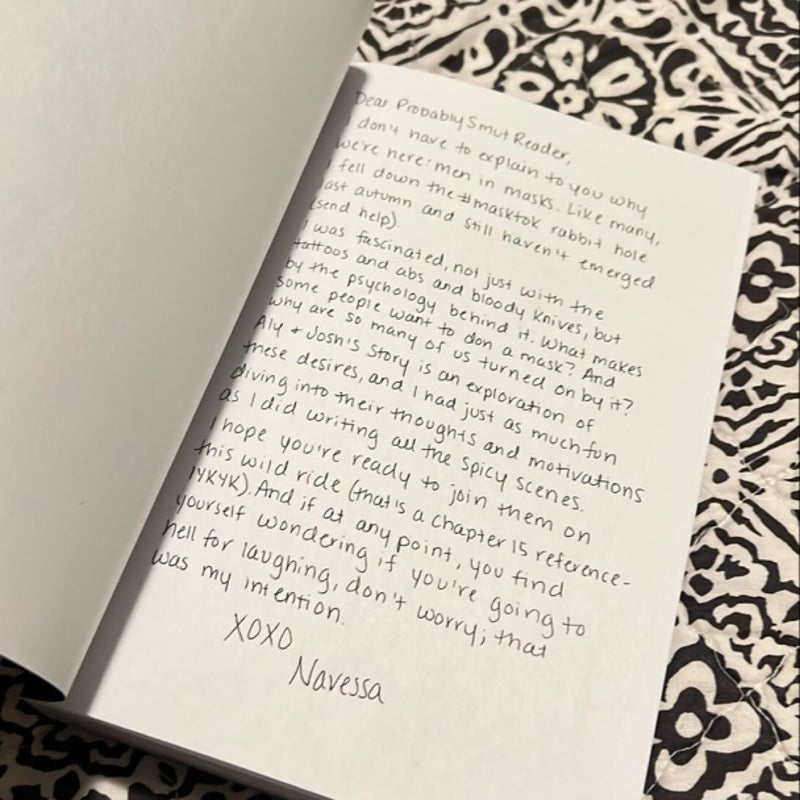 Dear Probably Smut Reader,
I don't have to explain to you why
we're here: men in masks. Like many,
I fell down the #masktok rabbit hole
last autumn and still haven't emerged
(send help).
I was fascinated, not just with the
tattoos and abs and bloody knives, but
by the psychology behind it. What makes
some people want to don a mask? And
why are so many of us turned on by it?
Aly + Josh's story is an exploration of
these desires, and I had just as much fun
diving into their thoughts and motivations
as I did writing all the spicy scenes.
I hope you're ready to join them on
this wild ride (that's a chapter 15 reference-
IYKYK). And if at any point, you find
yourself wondering if you're going to
hell for laughing, don't worry; that
was my intention.
XOXO
Navessa